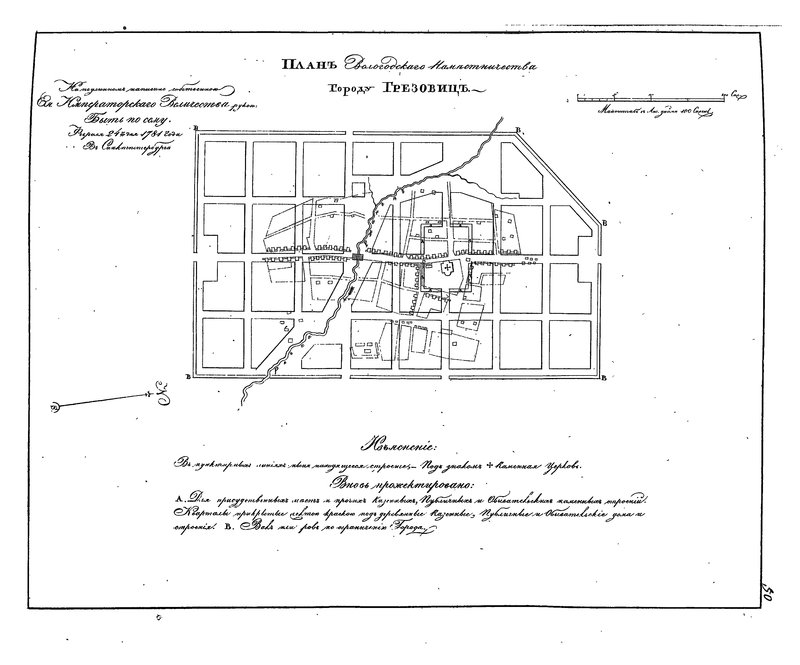 Планъ Вологодскаго Намѣстничества
Городу Грезовицъ.
На подлинномъ написано собственной
Ея Императорскаго Величества рукою:
Быть по сему.
24 1781 года
Въ Санктпетербургѣ
100 Саж.
Масштабъ въ 100 Саженъ
В
В
В
В
В
Изъясненіе:
Въ пунктирныхъ линіяхъ нынѣ находящееся строеніе, Подъ знакомъ + Каменная Церковь.
Вновь прожектировано:
А. Для присудственныхъ мѣстъ и прочихъ Казенныхъ, Публичныхъ и Обывательскихъ каменныхъ строеній.
Кварталы покрытые краскою подъ деревянные Казенные, Публичные и Обывательскіе дома и
строенія. В. Валъ или ровъ по ограниченію Города.
50